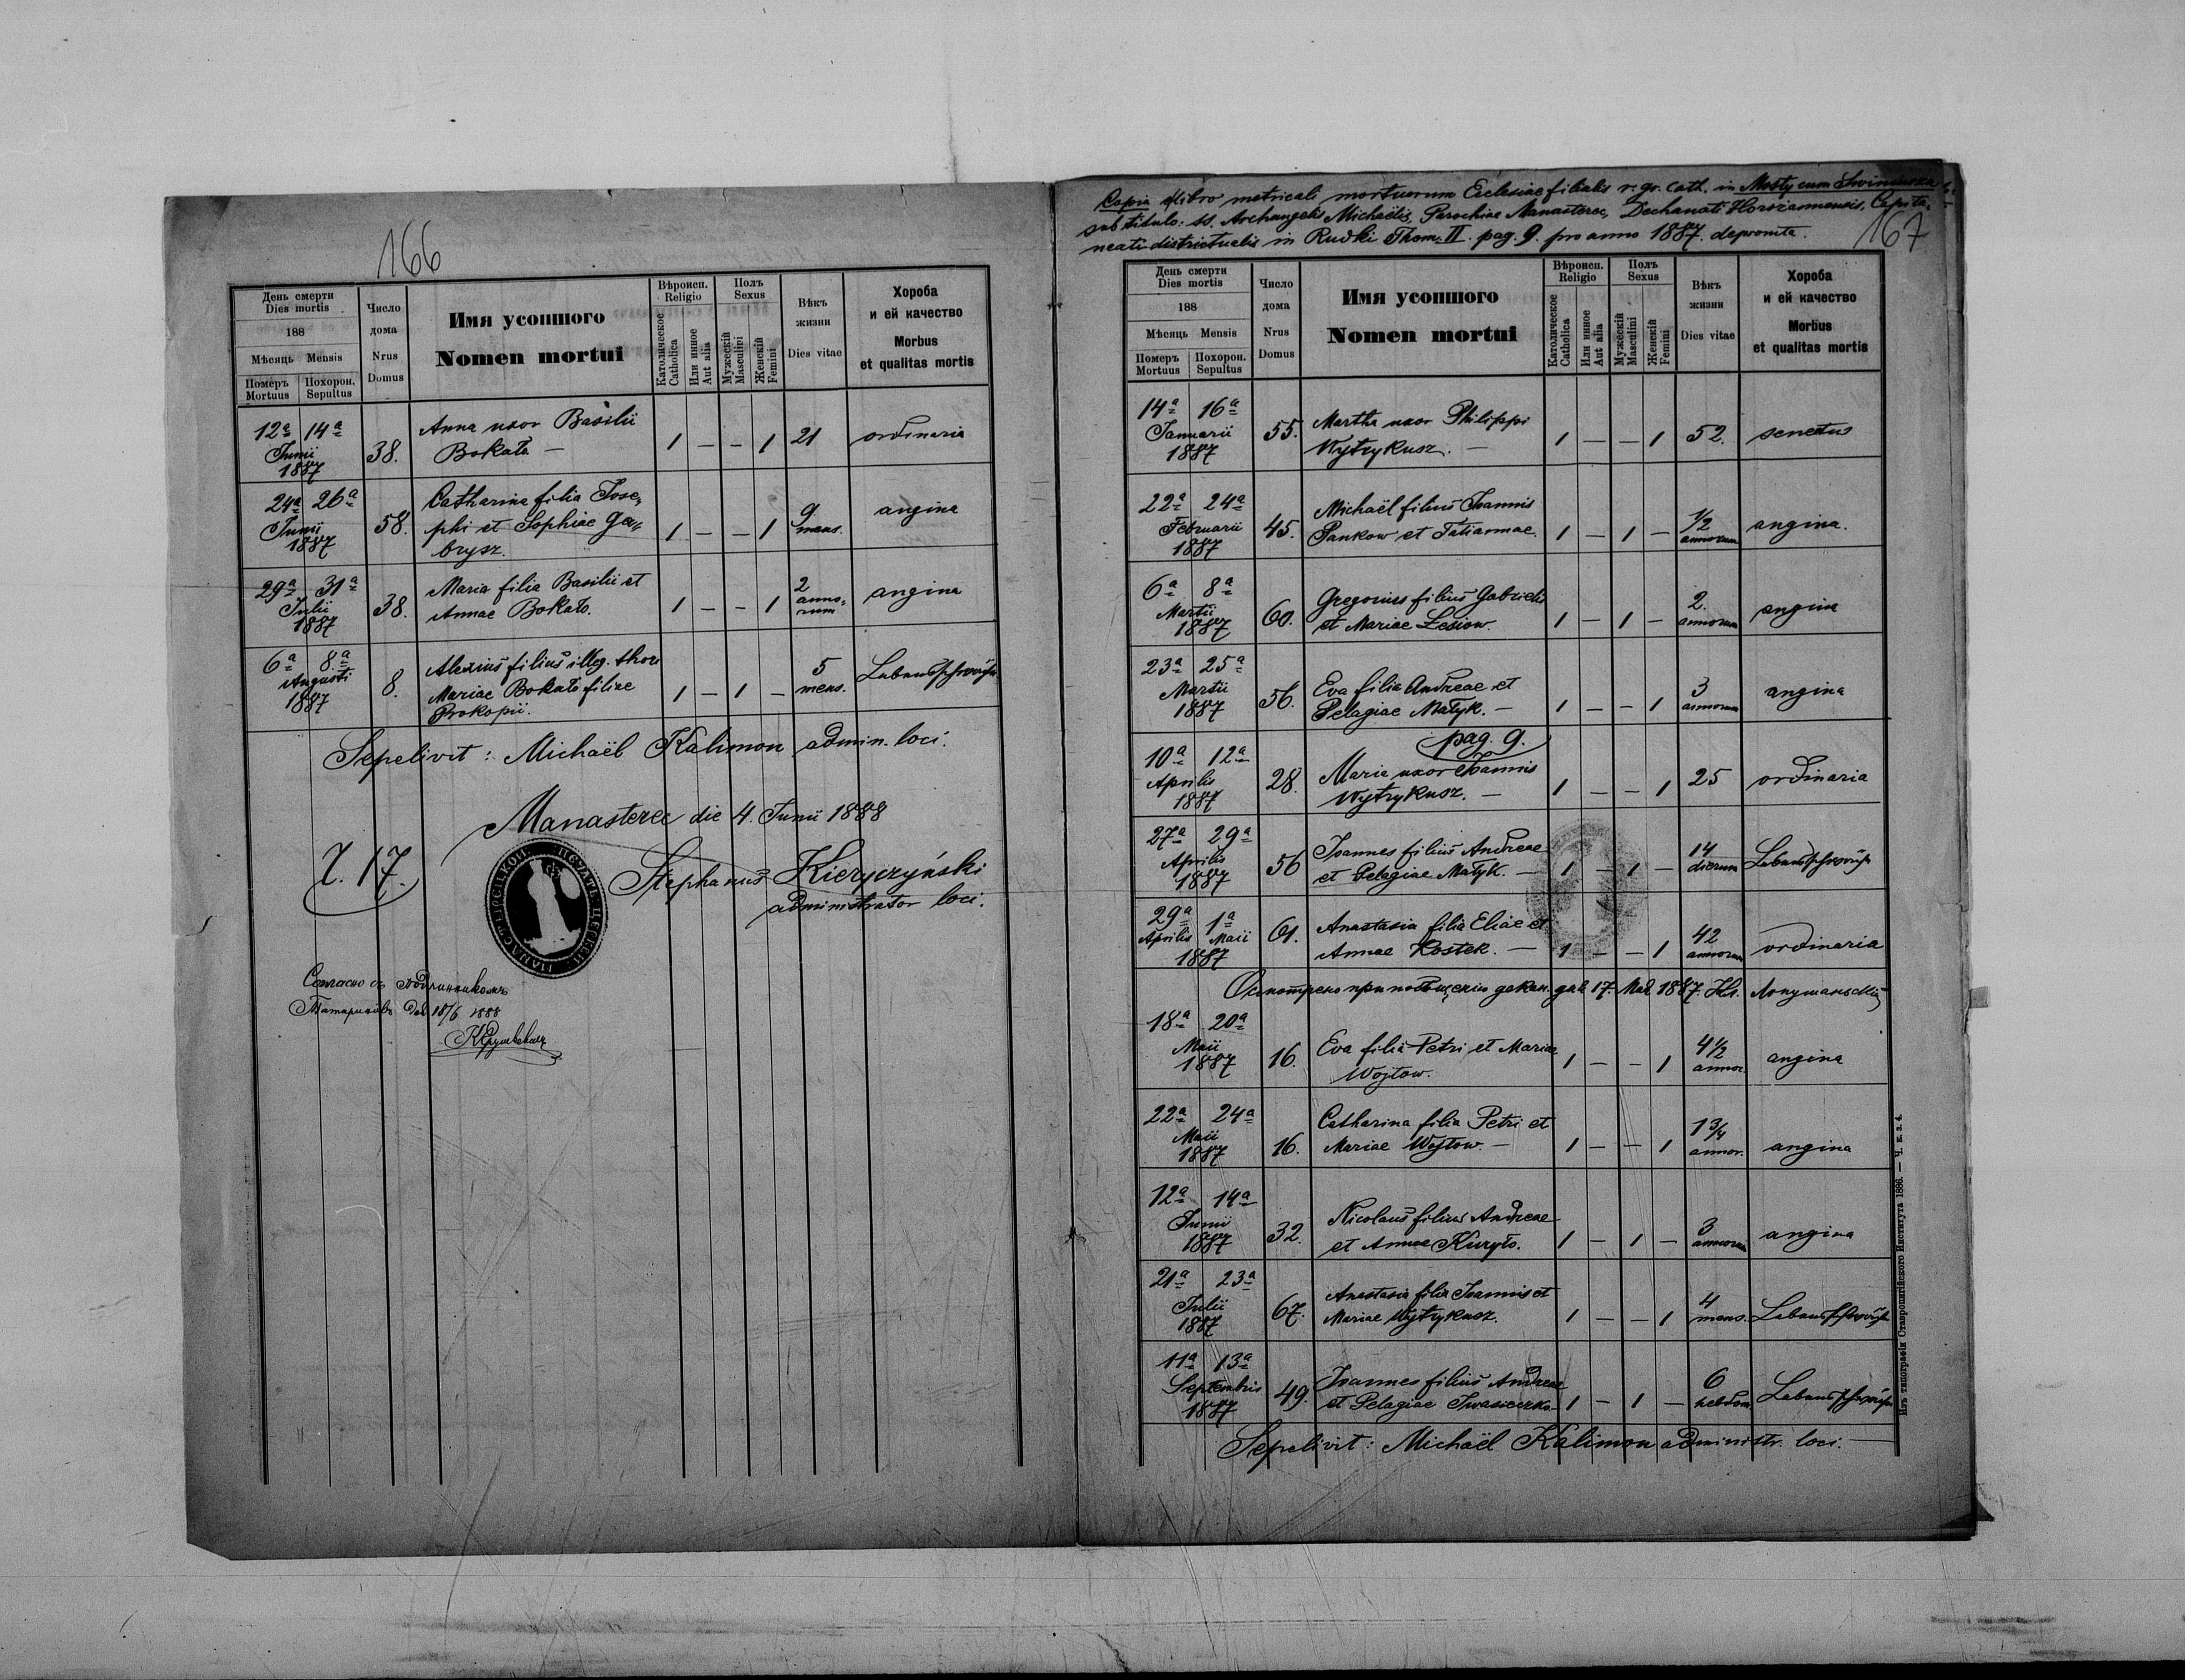 166
День смерти
Dies mortis
188
Мѣсяць Mensis
Померъ Mortuus
Похорон. Sepultus
Число дома
Nrus Domus
Имя усопшого
Nomen mortui
Вѣроисп.
Religio
Католическое Catholica
Или инное Aut alia
Полъ
Sexus
Мужескій Masculini
Женскій Femini
Вѣкъ жизни
Dies vitae
Хороба
и ей качество
Morbus
et qualitas mortis
12ª 14ª Junii 1887 38. Anna uxor Basilii
Bokało — 1 — — 1 21 ordinaria
24ª 26ª Junii 1887 58. Catharina filia Jose-
phi et Sophiae Ga-
brysz. 1 — — 1 9 mens. angina
29ª 31ª Julii 1887 38. Maria filia Basilii et
Annae Bokało. 1 — — 1 2 anno-
rum angina
6ª 8.ª Augusti 1887 8. Alexius filius illeg. thori
Mariae Bokało filiae
Prokopii. 1 — 1 — 5 mens. Lebensschwäche
Sepelivit: Michaël Kalimon admin. loci.
Manasterec die 4. Junii 1888
L. 17.
Stephanus Kieryczyński
administrator loci.
Согласно съ
18/6 1888
Copia libro metricali mortuorum Ecclesiae filialis r. gr. cath. in Mosty cum
sub titulo: ss. Archangeli Michaëlis, Parochiae Manasterec, Dechanati Horożannensis, Capita-
neati districtualis in Rudki Thom. II. pag. 9. pro anno 1887. depromta.
167
День смерти
Dies mortis
188
Мѣсяць Mensis
Померъ Mortuus
Похорон. Sepultus
Число дома
Nrus Domus
Имя усопшого
Nomen mortui
Вѣроисп.
Religio
Католическое Catholica
Или инное Aut alia
Полъ
Sexus
Мужескій Masculini
Женскій Femini
Вѣкъ жизни
Dies vitae
Хороба
и ей качество
Morbus
et qualitas mortis
14ª 16ª Januarii 1887 55. Martha uxor Philippi
Wytrykusz. — 1 — — 1 52. senectus
22ª 24ª Februarii 1887 45. Michaël filius Joannis
Pankow et Tatiannae. 1 — 1 — 1/2 annorum angina.
6ª 8ª Martii 1887 60. Gregorius filius Gabrielis
et Mariae Lesiow. 1 — 1 — 2. annorum angina
23ª 25ª Martii 1887 56. Eva filia Andreae et
Pelagiae Matyk. — 1 — — 1 3 annorum angina
pag. 9.
10ª 12ª Aprilis 1887 28. Maria uxor Joannis
Wytrykusz. — 1 — — 1 25 ordinaria
27ª 29ª Aprilis 1887 56 Joannes filius Andreae
et Pelagiae Matyk. — 1 — 1 — 14 dierum Lebensschwäche
29ª Aprilis 1ª Maii 1887 61. Anastasia filia Eliae et
Annae Kostek. — 1 — — 1 42 annorum ordinaria
Осмотрено при посѣщенію декан. дня 17. Мая 1887.
18ª 20ª Maii 1887 16. Eva filia Petri et Mariae
Wojtow. 1 — — 1 4 1/2 annor. angina
22ª 24ª Maii 1887 16. Catharina filia Petri et
Mariae Wojtow. — 1 — — 1 1 3/4 annor. angina
12ª 14ª Junii 1887 32. Nicolaus filius Andreae
et Annae Kuryło. 1 — 1 — 3 annorum angina
21ª 23ª Julii 1887 67. Anastasia filia Joannis et
Mariae Wytrykusz. 1 — — 1 4 mens. Lebensschwäche
11ª 13ª Septembris 1887 49. Joannes filius Andreae
et Pelagiae Iwasieczko. 1 — 1 — 6 hebdom. Lebensschwäche
Sepelivit: Michaël Kalimon administr. loci. —
Изъ типографіи Ставропигійского Института 1886. — Ч. к. з. 4.